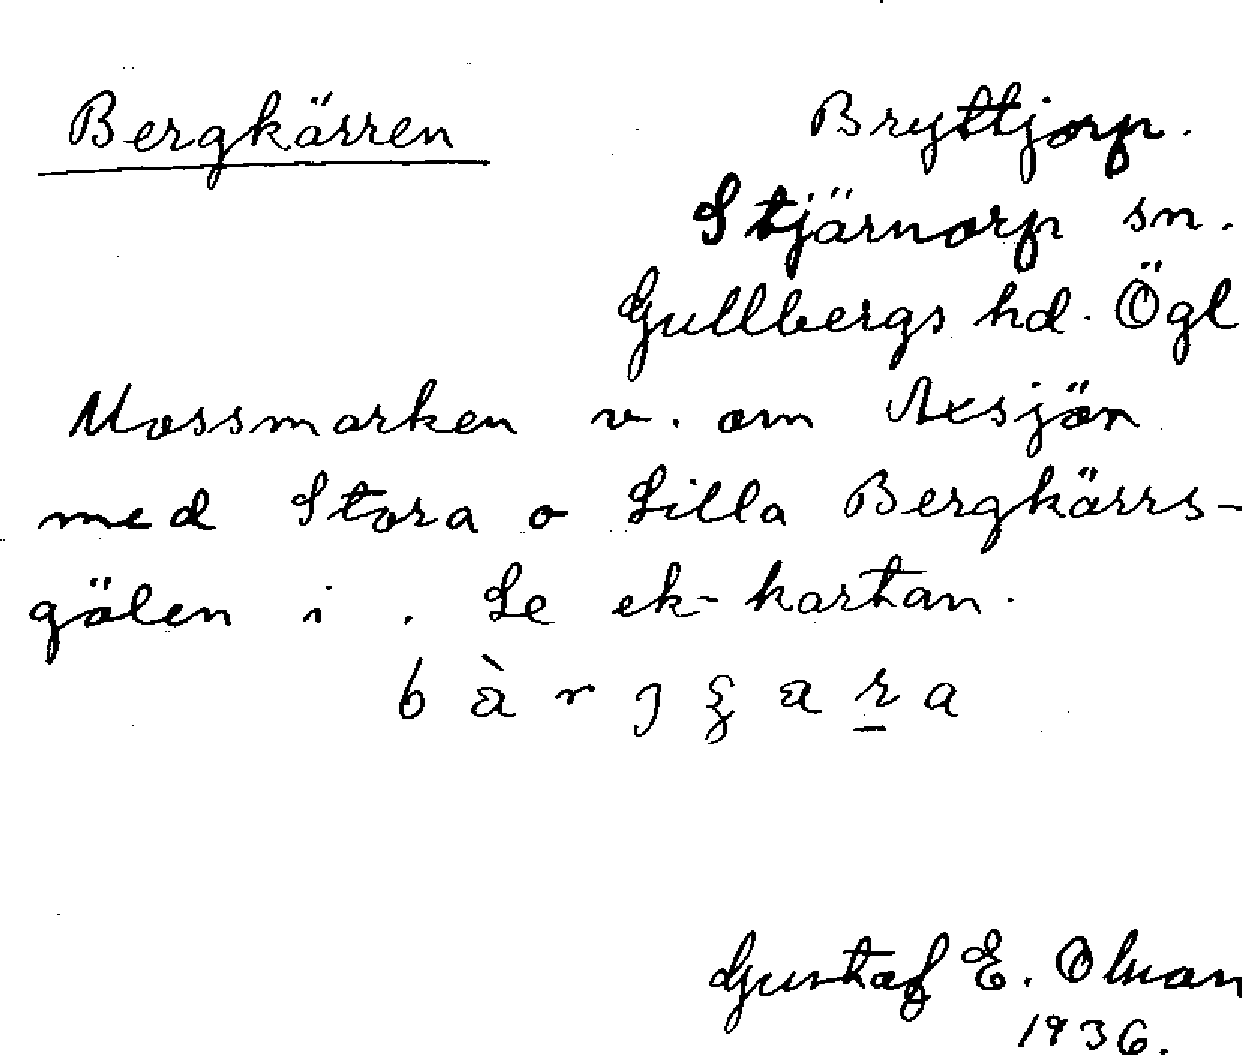 Bergkärren
Bryttjorp.
Stjärnorp sn.
Gullbergs hd. Ögl
Mossmarken v. om Axsjön
med Stora o Lilla Bergkärrs-
gölen i. Se ek-kartan.
Gustaf E. Olson
1936.